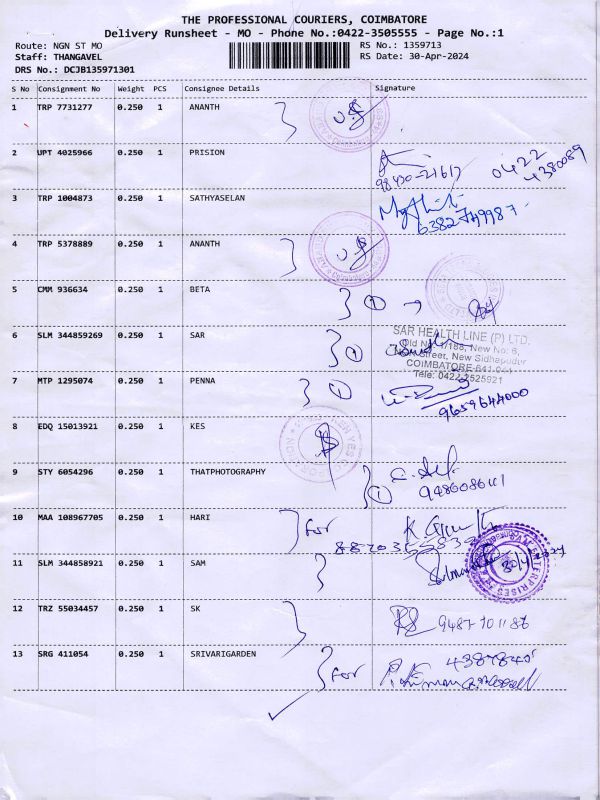 THE PROFESSIONAL COURIERS, COIMBATORE
Delivery Runsheet - MO - Phone No.:0422-3505555 - Page No.:1
Route: NGN ST MO
RS No.: 1359713
Staff: THANGAVEL
RS Date: 30-Apr-2024
DRS No.: DCJB135971301
S No Consignment No Weight PCS Consignee Details Signature
1 TRP 7731277 0.250 1 ANANTH
2 UPT 4025966 0.250 1 PRISION
98430-21617 0422
4380089
3 TRP 1004873 0.250 1 SATHYASELAN
6382749987
4 TRP 5378889 0.250 1 ANANTH
5 CMM 936634 0.250 1 BETA
1
6 SLM 344859269 0.250 1 SAR
1
SAR HEALTH LINE (P) LTD.
Old No. 1/188, New No: 6,
Street, New Sidhapudur
COIMBATORE-641 044
Tele: 0422-2525921
7 MTP 1295074 0.250 1 PENNA
1
9659644000
8 EDQ 15013921 0.250 1 KES
9 STY 6054296 0.250 1 THATPHOTOGRAPHY
1
10 MAA 108967705 0.250 1 HARI
for
11 SLM 344858921 0.250 1 SAM
SAM ENTERPRISES
12 TRZ 55034457 0.250 1 SK
9487701186
13 SRG 411054 0.250 1 SRIVARIGARDEN
for